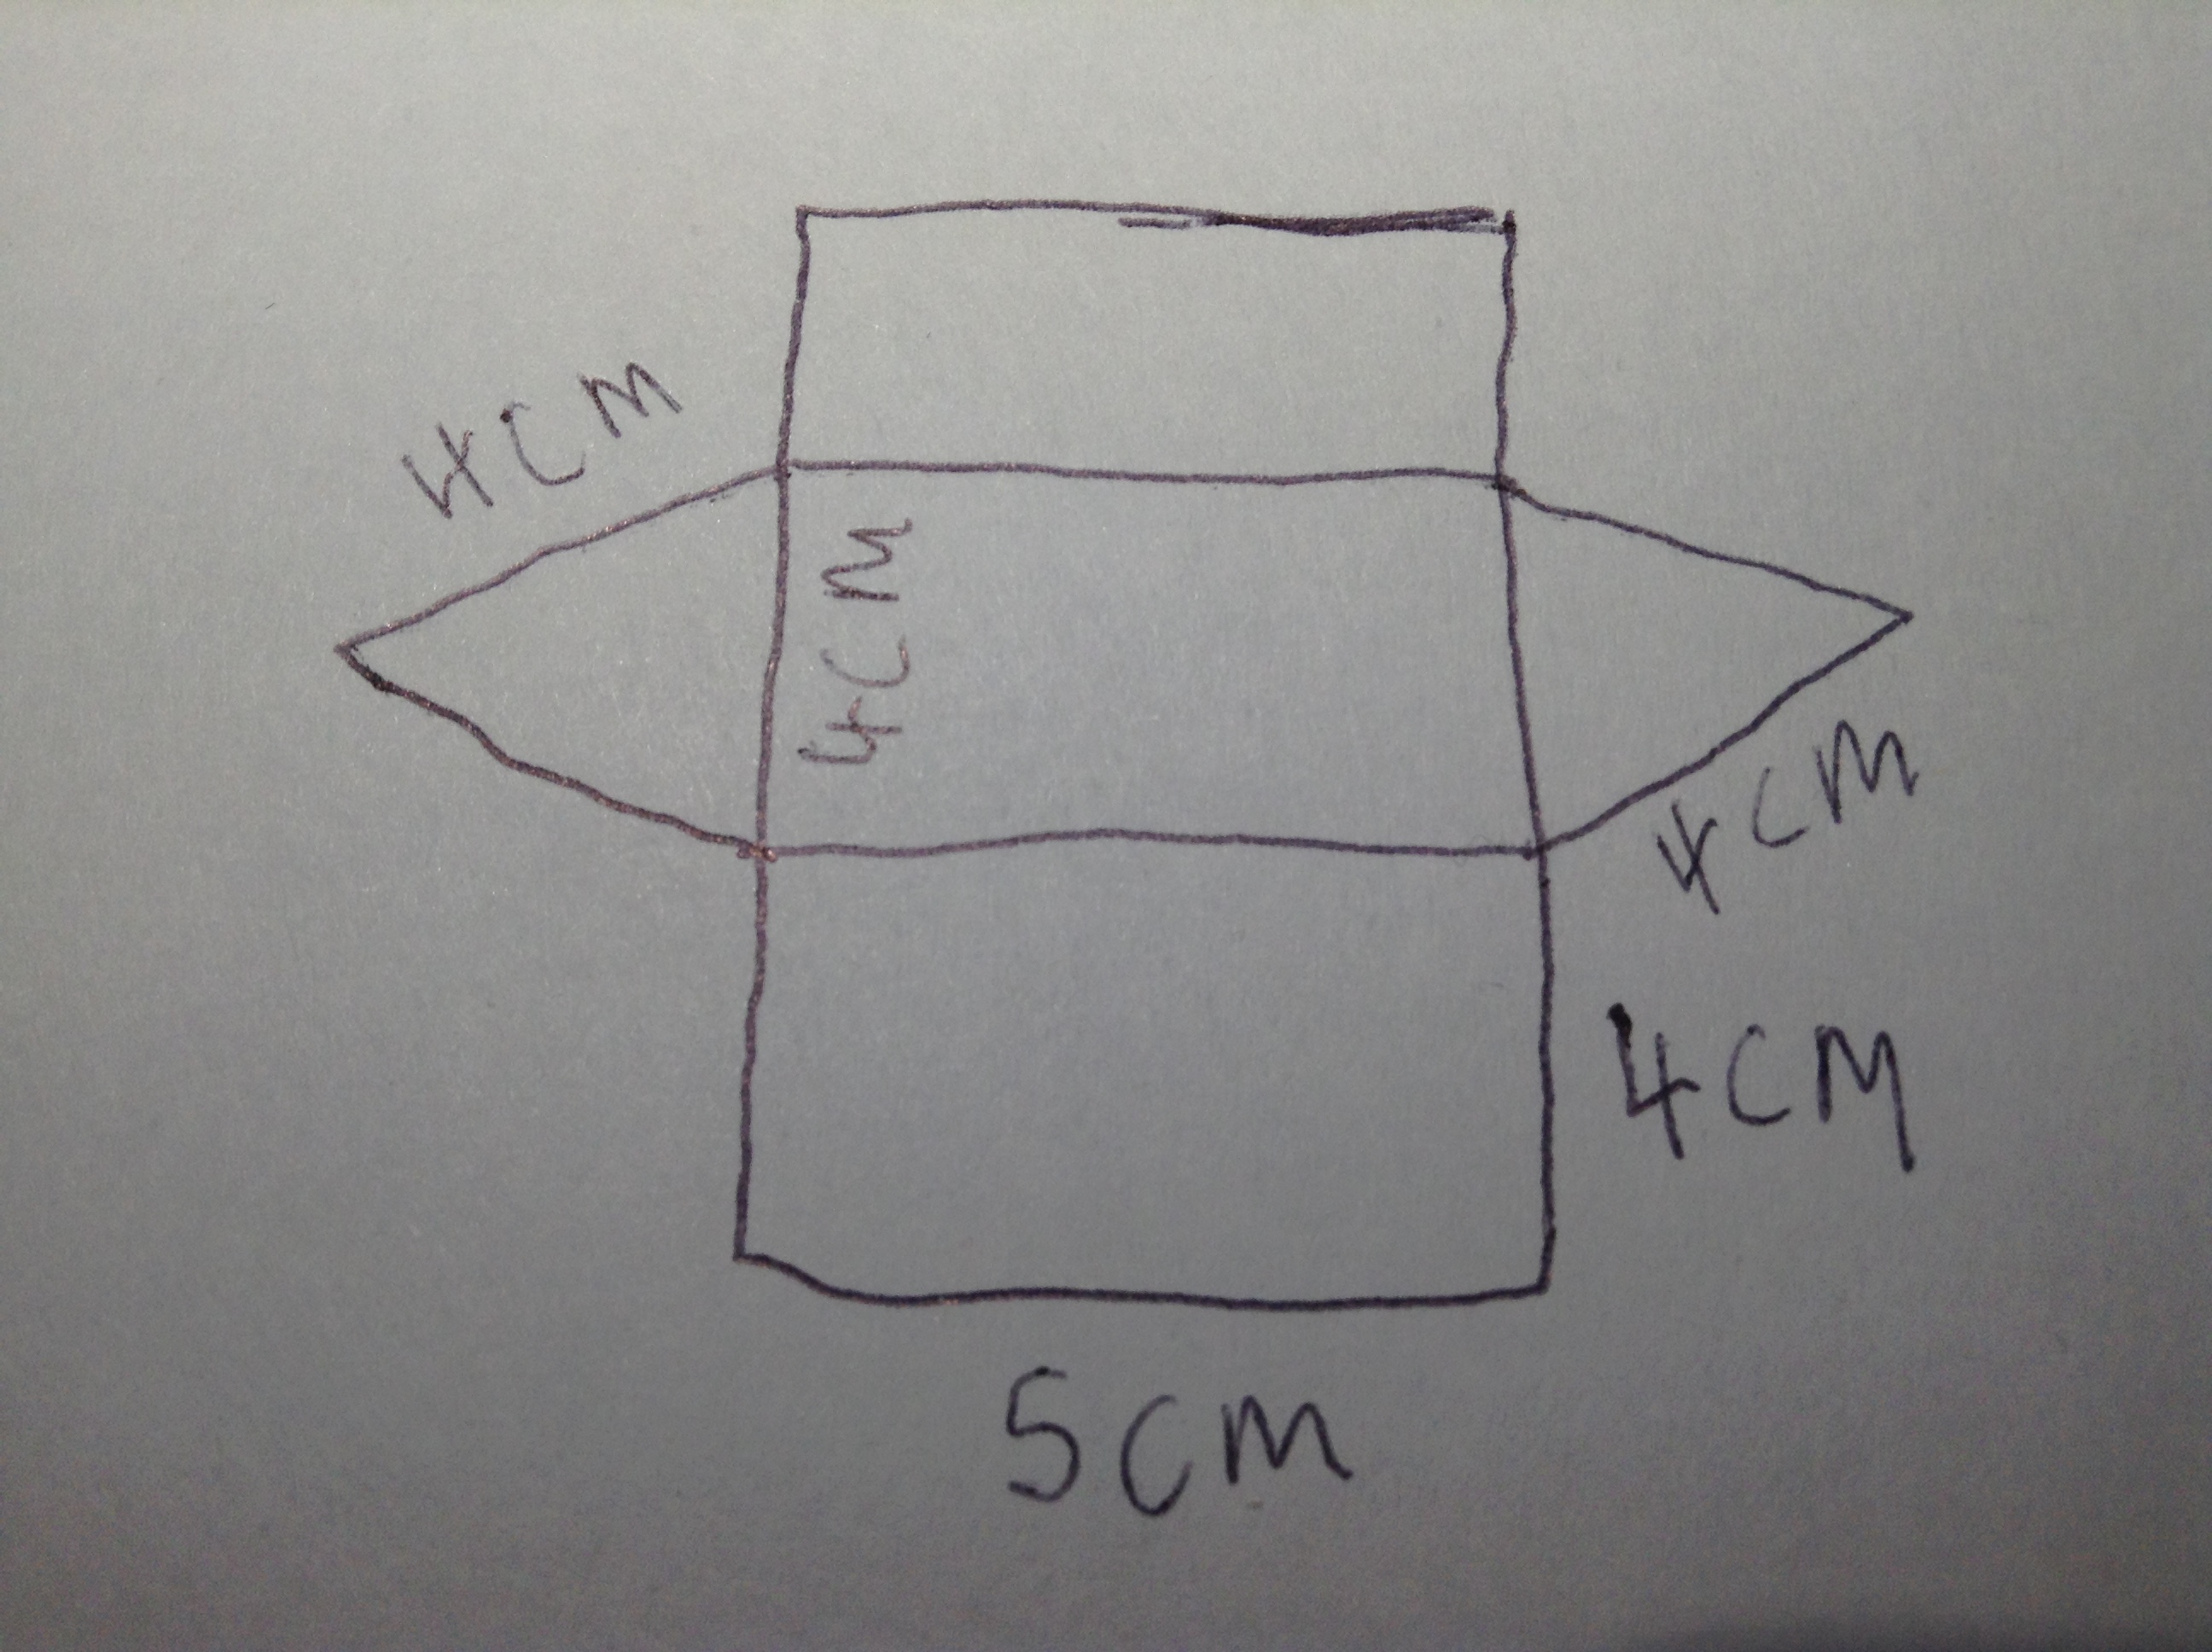 4CM
4CM
4CM
4CM
5CM